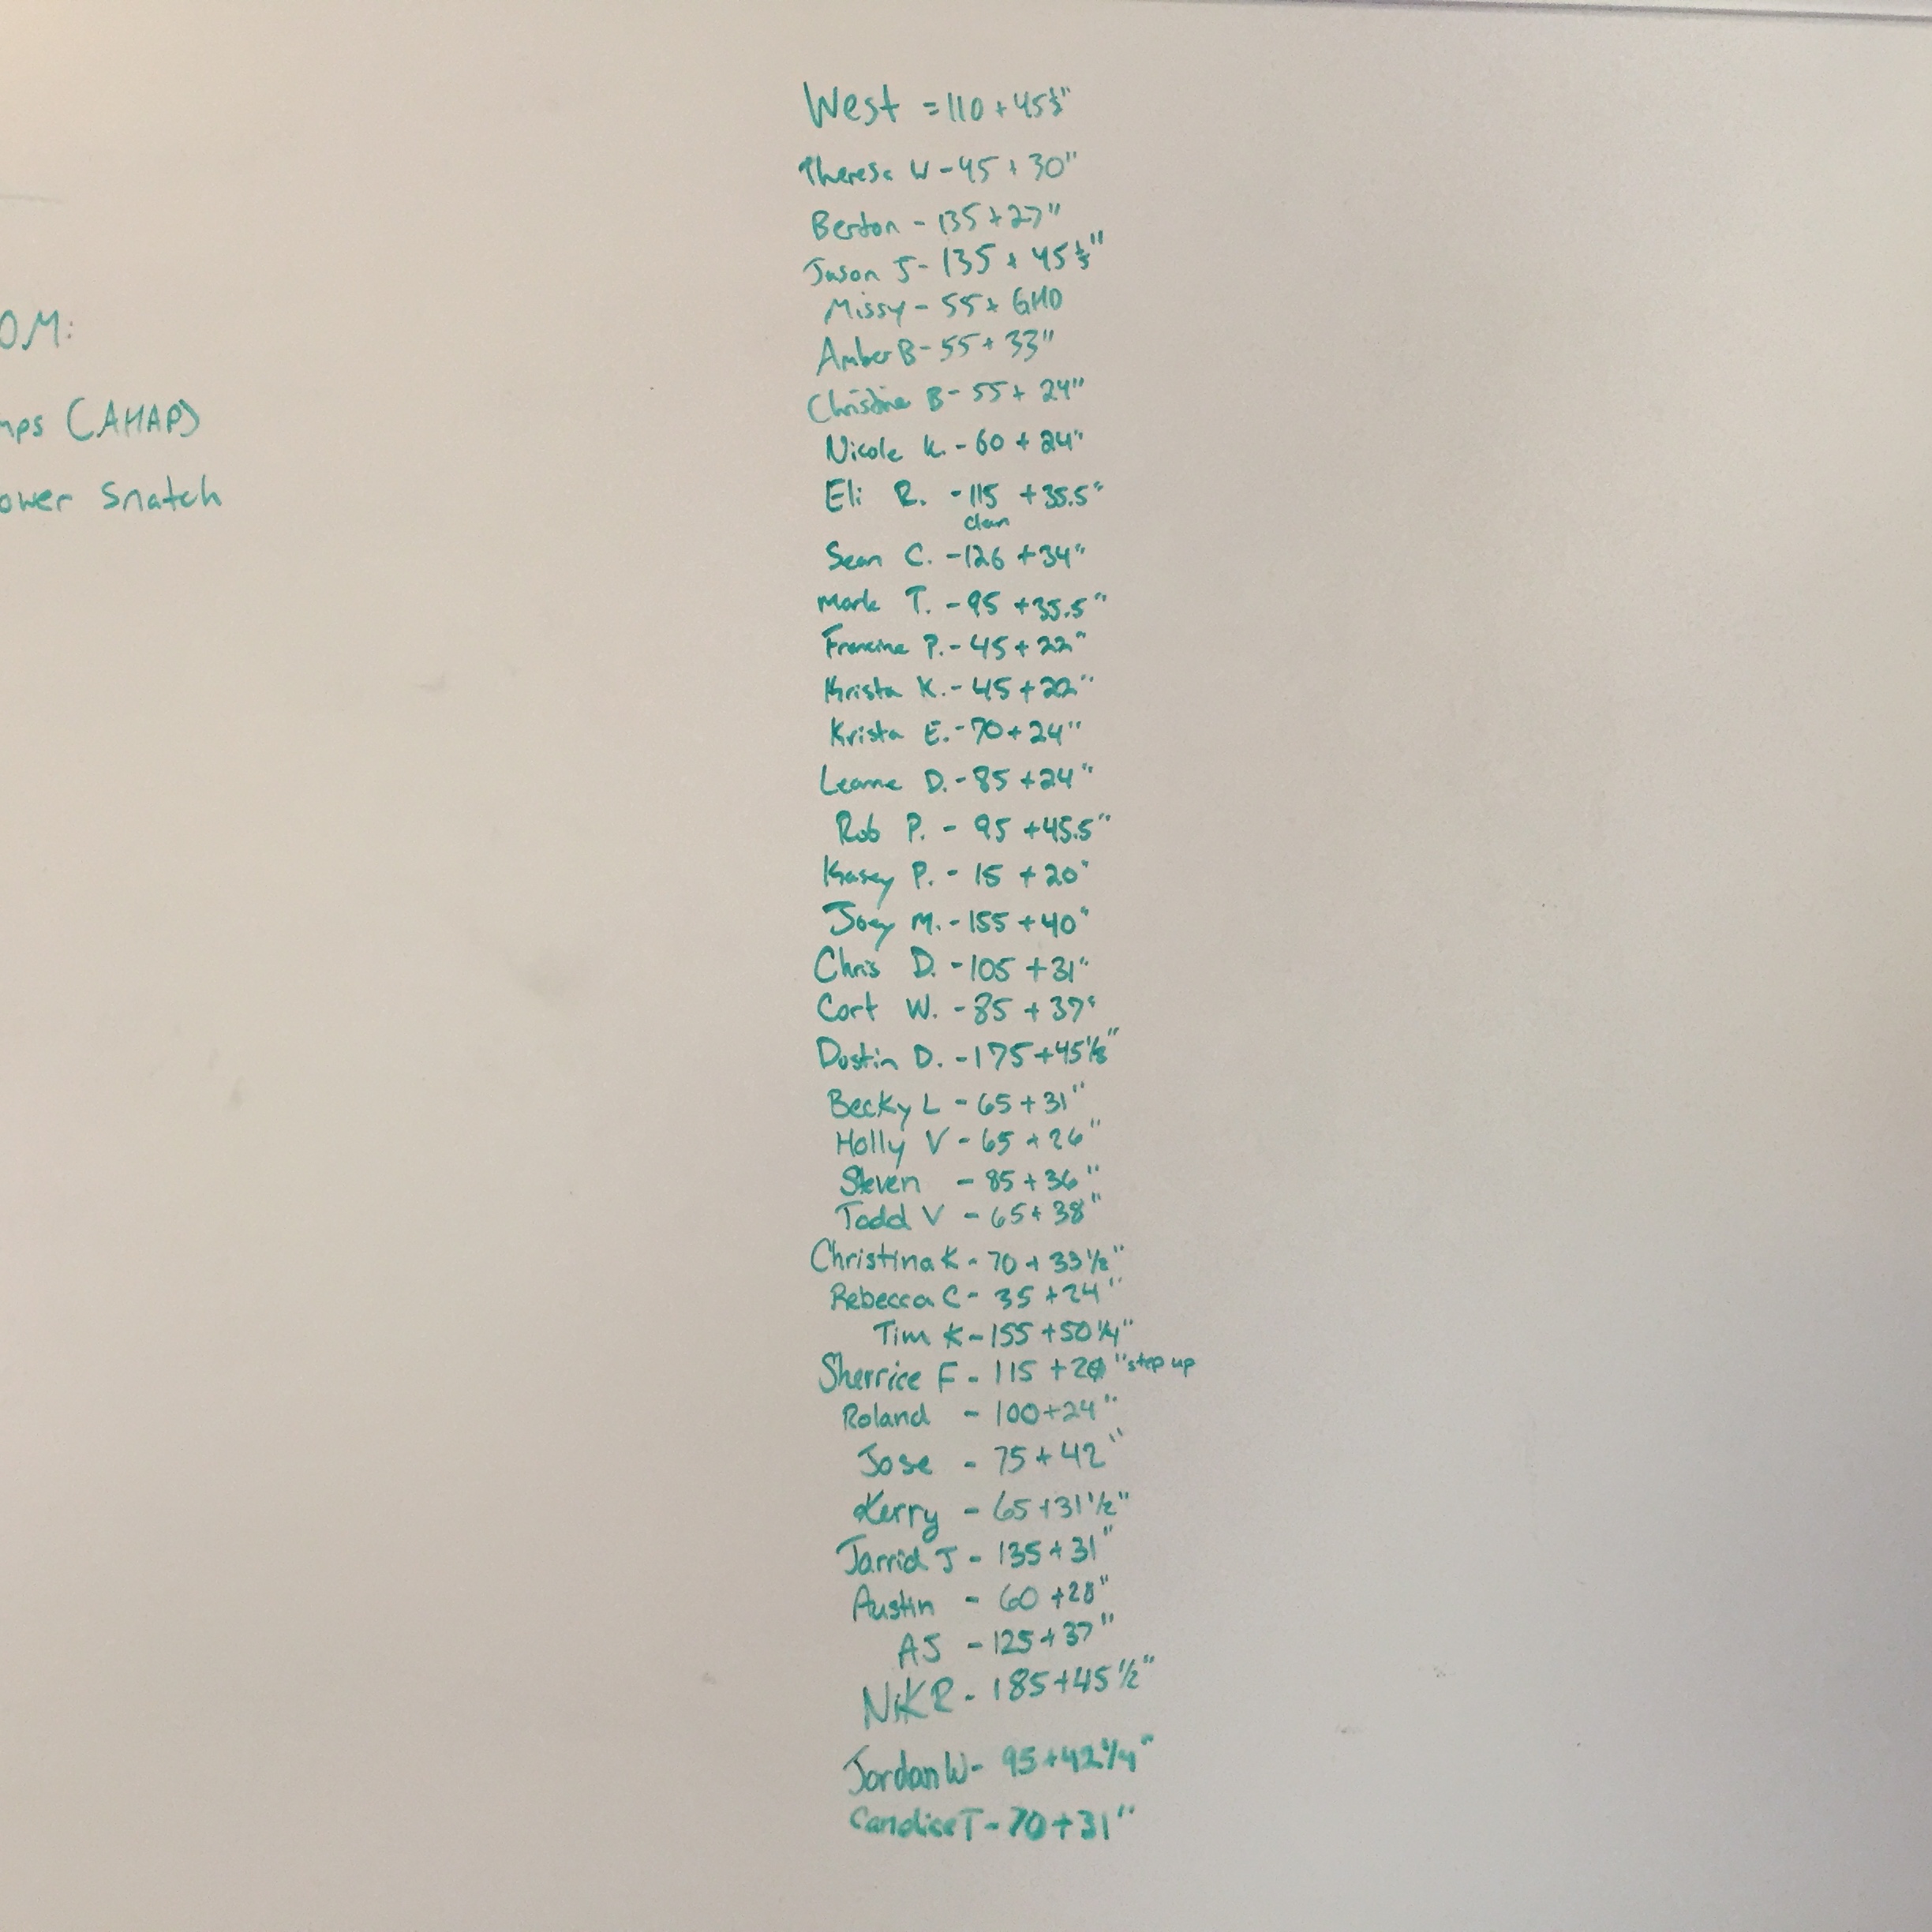 West = 110 + 45½"
Theresa W - 45 + 30"
Berton - 135 + 27"
Jason J - 135 + 45½"
OM:
Missy - 55 + GHD
Amber B - 55 + 33"
Christine B - 55 + 24"
mps (AHAP)
Nicole K. - 60 + 24"
ower Snatch
Eli R. - 115 + 35.5"
clean
Sean C. - 126 + 34"
Mark T. - 95 + 35.5"
Francine P. - 45 + 22"
Krista K. - 45 + 22"
Krista E. - 70 + 24"
Leanne D. - 85 + 24"
Rob P. - 95 + 45.5"
Kasey P. - 15 + 20"
Joey M. - 155 + 40"
Chris D. - 105 + 31"
Cort W. - 85 + 37"
Dustin D. - 175 + 45⅛"
Becky L - 65 + 31"
Holly V - 65 + 26"
Steven - 85 + 36"
Todd V - 65 + 38"
Christina K - 70 + 33½"
Rebecca C - 35 + 24"
Tim K - 155 + 50¼"
Sherrice F - 115 + 20" step up
Roland - 100 + 24"
Jose - 75 + 42"
Kerry - 65 + 31½"
Jarrid J - 135 + 31"
Austin - 60 + 28"
AJ - 125 + 37"
Nik R - 185 + 45½"
Jordan W - 95 + 42¼"
Candice T - 70 + 31"